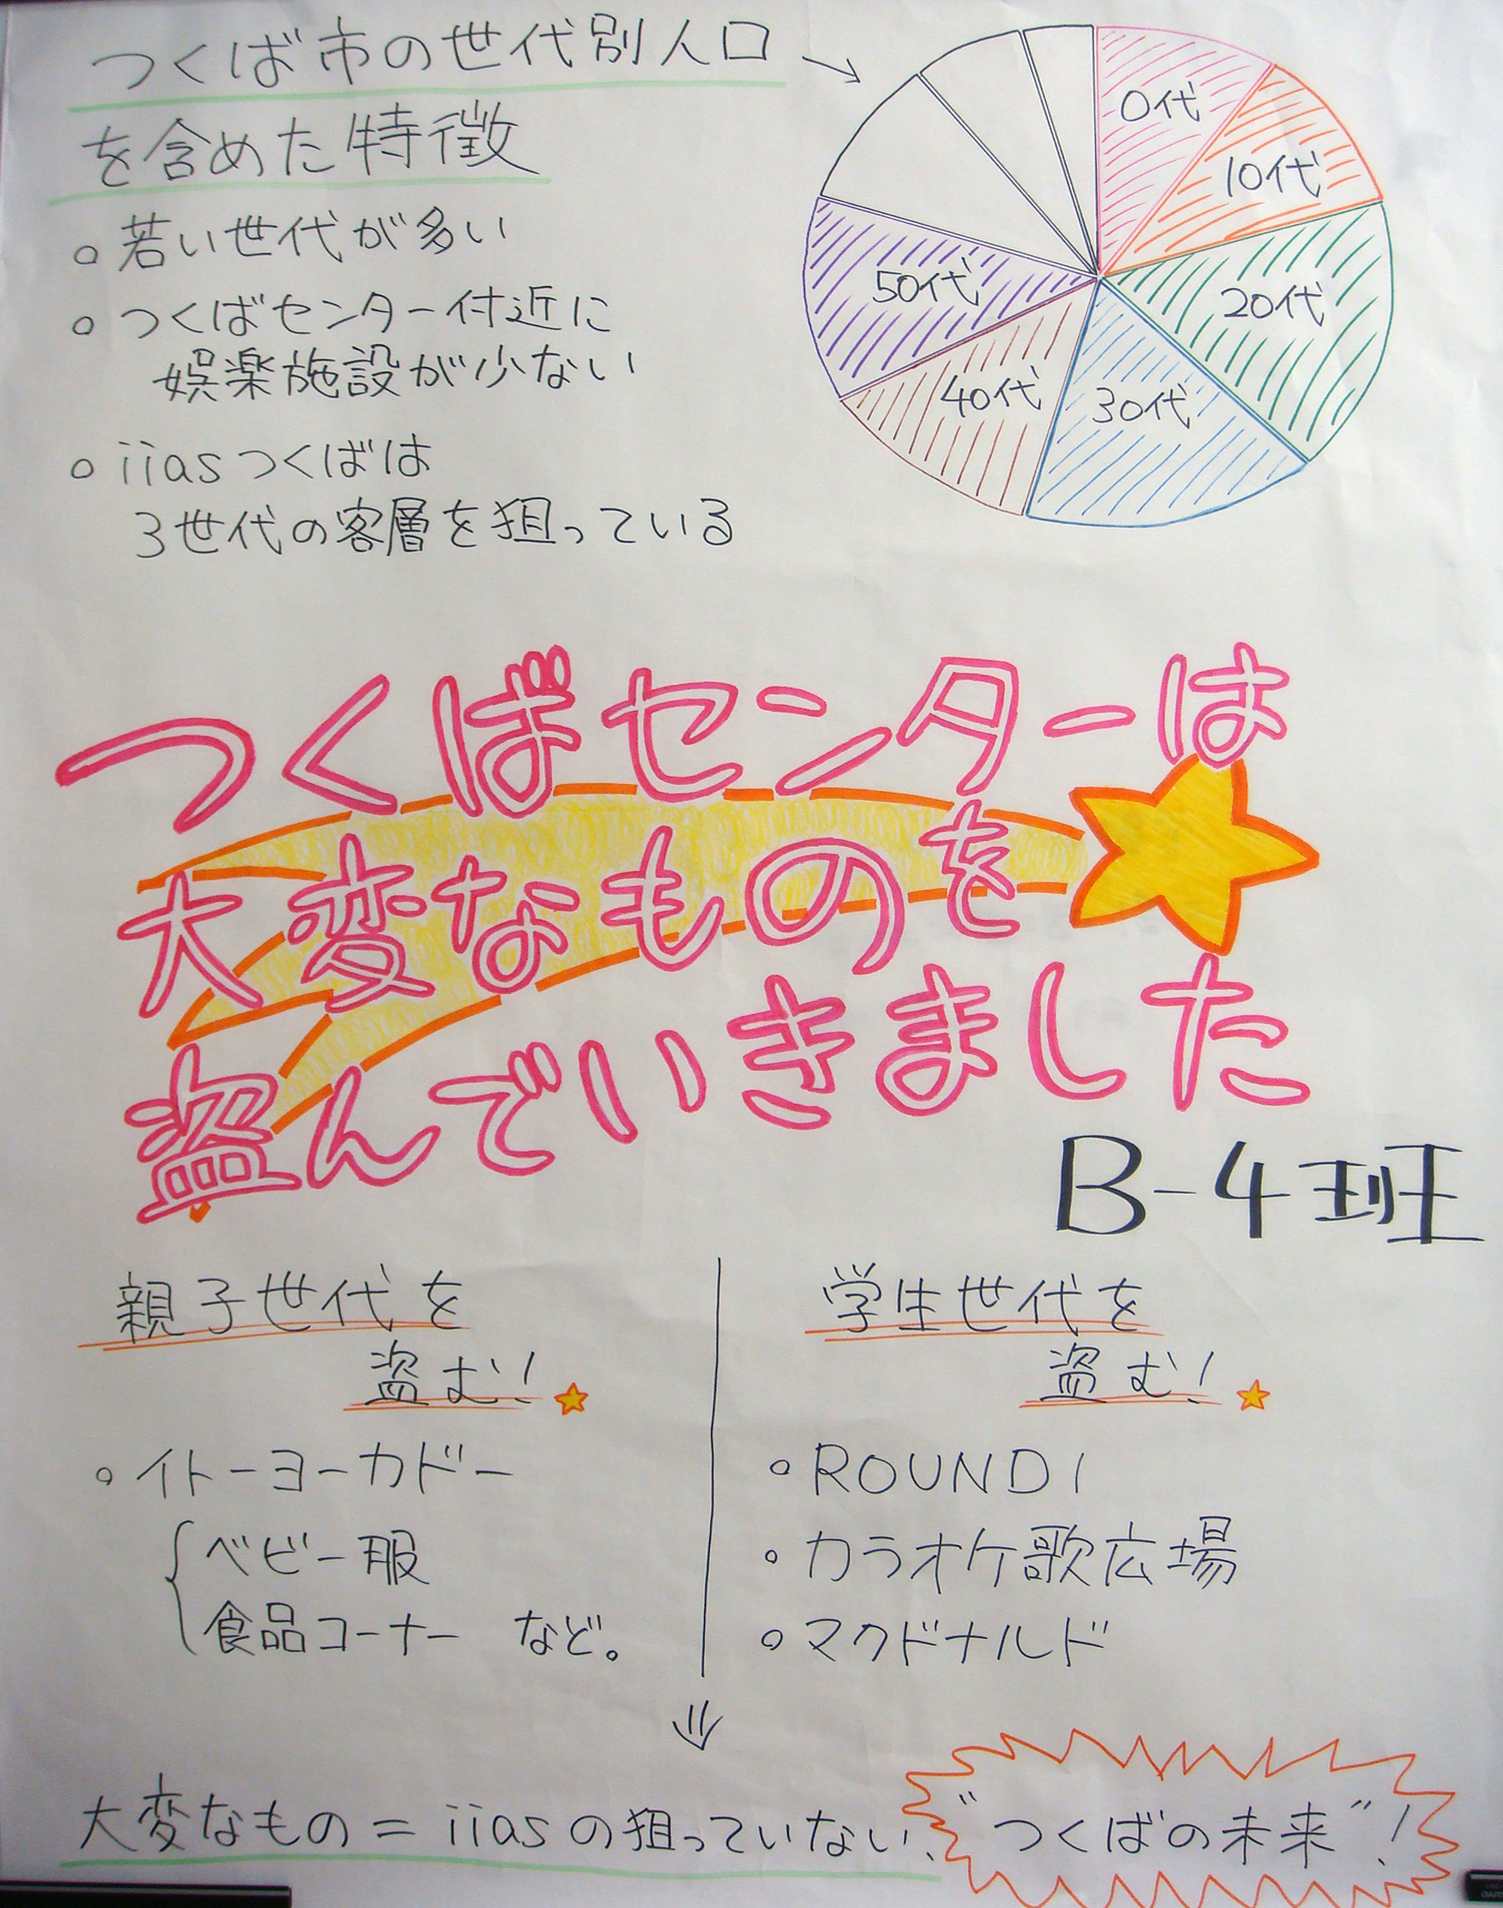 つくば市の世代別人口
を含めた特徴
。若い世代が多い
。つくばセンター付近に
娯楽施設が少ない
。iiasつくばは
3世代の客層を狙っている
0代
10代
20代
30代
40代
50代
つくばセンターは
大変なものを
盗んでいきました
B-4班
親子世代を
盗む!
。イトーヨーカドー
ベビー服
食品コーナー など。
学生世代を
盗む!
。ROUND1
。カラオケ歌広場
。マクドナルド
大変なもの=iiasの狙っていない、"つくばの未来"!